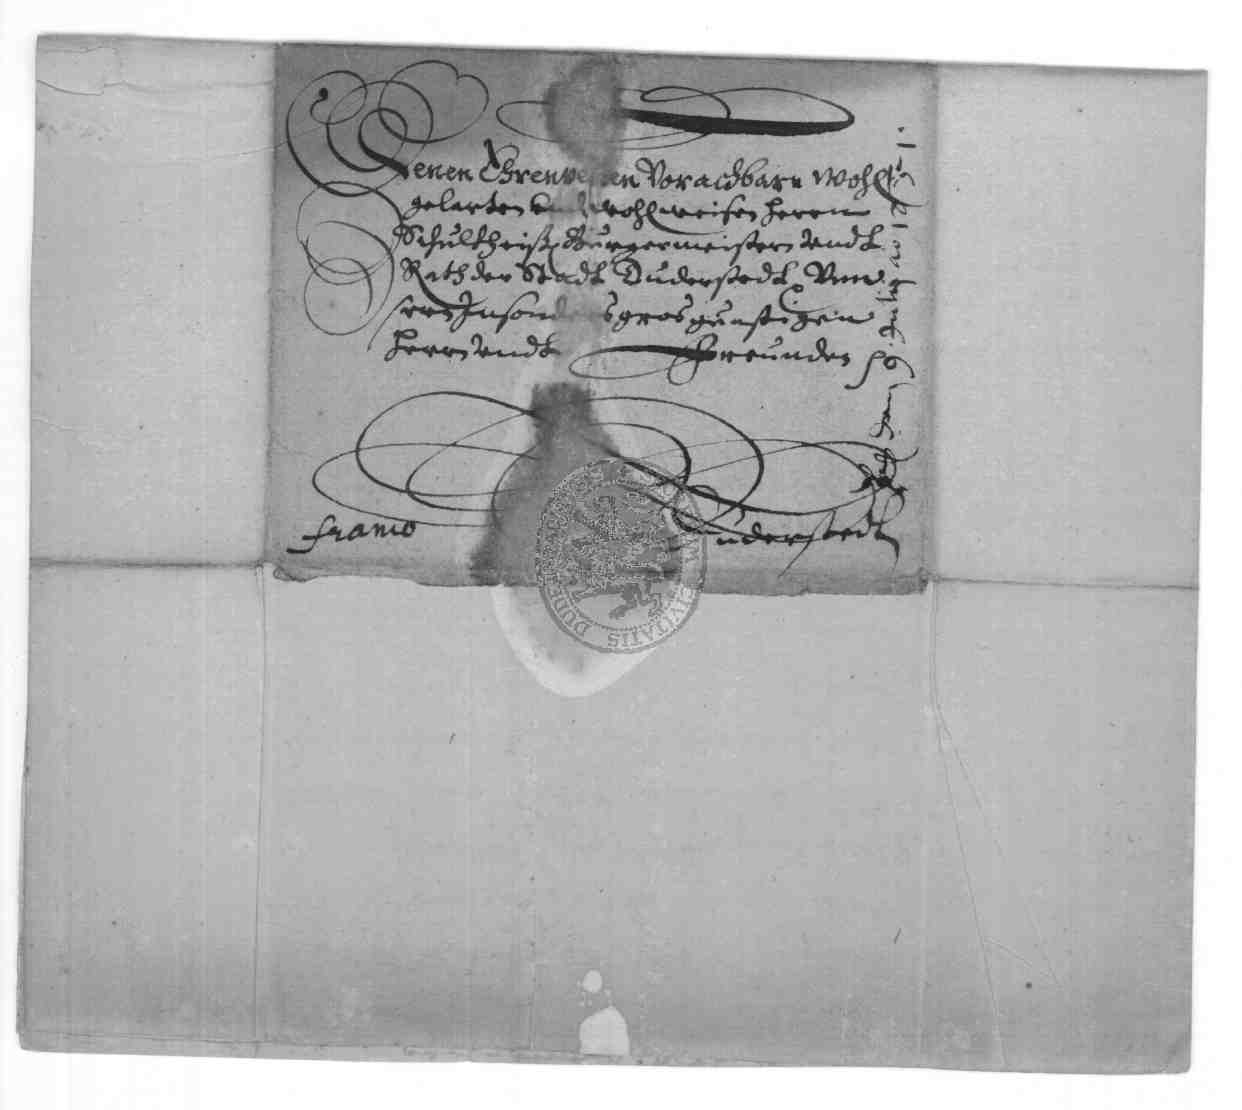 Denen Ehrenvesten Vorachbarn Wohl
gelarten undt wohlweisen herrn
Schultheiß Bürgermeistern undt
Rath der Stadt Duderstedt Unn
sern Insonders grosgünstigen
herrn undt Freunden
franco
Duderstedt
SIGILLUM CIVITATIS DUDERSTADT